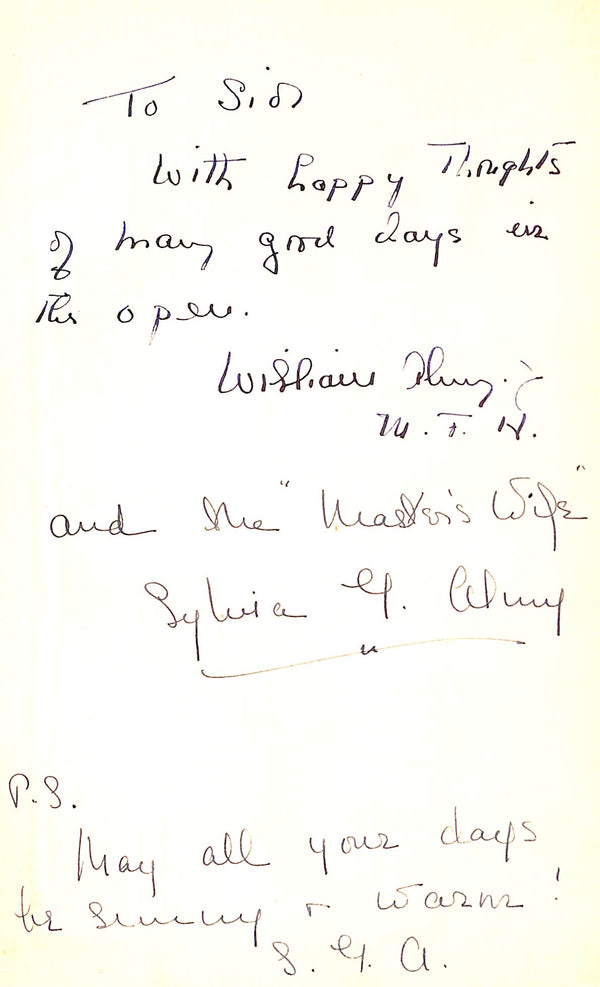 To Sid
With happy Thoughts
of many good days in
The open.
William Almy. Jr
M. F. H.
and the "Master's Wife"
Sylvia G. Almy
P.S.
May all your days
be sunny + warm!
S. G. A.